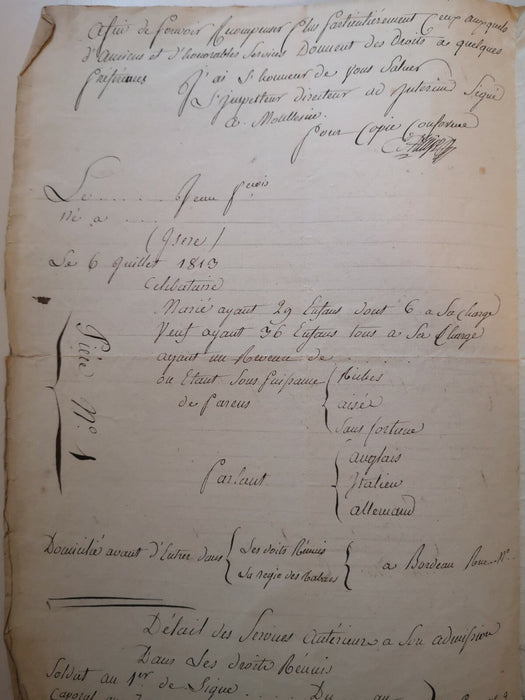 Afin de pouvoir Recompenser Plus Particulièrement Ceux auxquels
d'Anciens et d'honorables Services Donnent des Droits a quelques
Préférences J'ai L'honneur de vous Saluer
L'Inspecteur directeur ad Interim Signé
Pour Copie Conforme
Le ...... Jean f.cois
Né a ....
(Isere)
Le 6 Juillet 1813
Celibataire
Marié ayant 29 Enfans dont 6 a Sa Charge
Veuf ayant 36 Enfans tous a Sa Charge
ayant un Revenu de ......
ou Etant Sous Puissance { Riches
de Parens { aisée
Sans fortune
Pièce No. 1
Parlant { anglais
Italien
allemand
Domicilié avant d'Entrer dans { Les droits Réunis
La regie des Tabacs { a Bordeau Rue .. No..
Détail des Services Antérieur a Son admission
Dans Les droits Réunis
Soldat au 1er de Ligne ... Du ... au
Caporal au